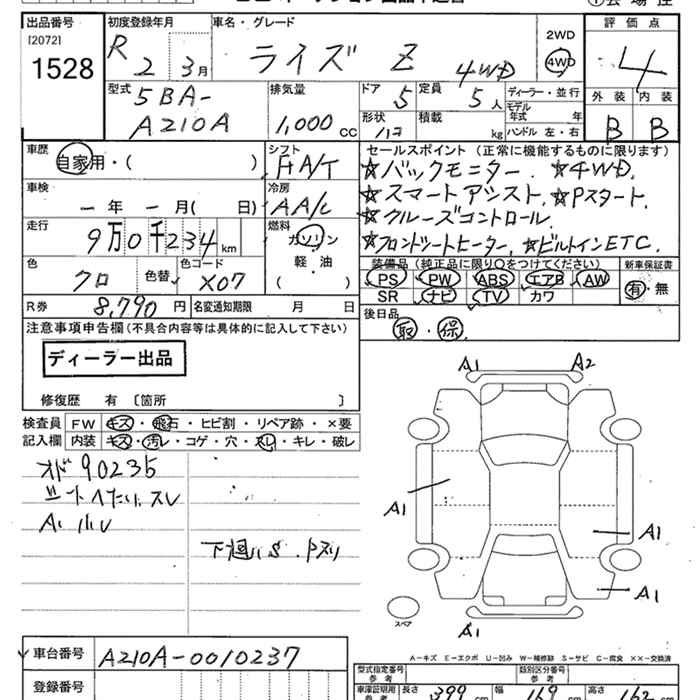 出品番号 初度登録年月 車名・グレード 評価点
[2072] R 2 3月 ライズ Z 4WD 2WD 4WD 4
1528
外装 内装
型式 排気量 ドア 定員 ディーラー・並行
5BA- 5 5人 モデル年式 年 B B
A210A 1,000cc 形状 積載 kg ハンドル 左・右
車歴 シフト セールスポイント(正常に機能するものに限ります)
自家用・( ) FA/T ☆バックモニター. ☆4WD.
車検 冷房 ☆スマートアシスト. ☆Pスタート.
ー年 ー月( 日) AA/C ☆クルーズコントロール
走行 燃料 ☆フロントシートヒーター. ☆ビルトインETC.
9万0千234km ガソリン
軽・油
( )
色 色替 色コード 装備品(純正品に限り○をつけてください) 新車保証書
クロ X07 PS PW ABS エアB AW 有・無
SR ナビ TV カワ
R券 8,790円 名変通知期限 月 日 後日品
取・保
注意事項申告欄(不具合内容等は具体的に記入して下さい)
ディーラー出品
修復歴 有 〔箇所 〕
検査員 FW キズ・飛石・ヒビ割・リペア跡・×要
記入欄 内装 キズ・汚レ・コゲ・穴・スレ・キレ・破レ
オド90235
シートヘたり.スレ
A.小U
下廻りS.
A1 A2
A1
A1
A1
A1
スペア
A-キズ E-エクボ U-凹み W-補修跡 S-サビ C-腐食 ××-交換済
車台番号 A210A-0010237
登録番号
型式指定番号 参考 類別区分番号 参考
車庫証明用 参考 長さ 399cm 幅 169cm 高さ 162cm